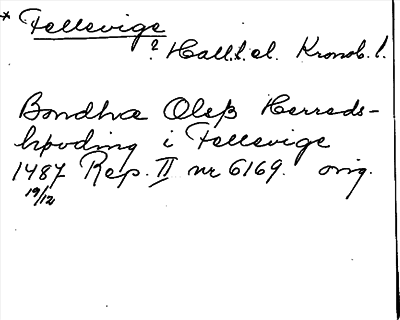 * Fellevige
? Hall.l. el. Kronob. l.
Bondhæ Olsß Herreds-
høvding i Fellevige
1487 Rep. II nr 6169. orig.
19/12